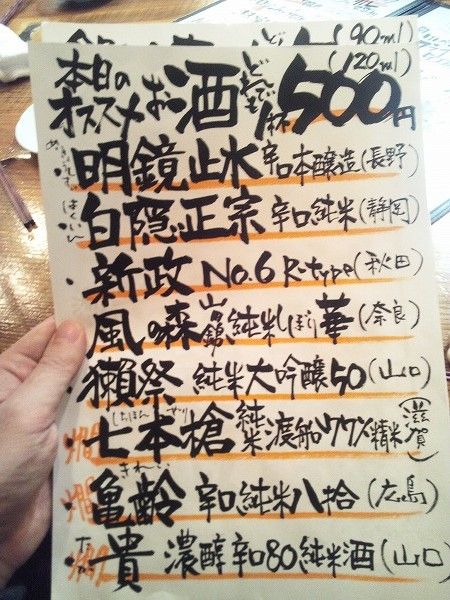 (90ml)
本日の
オススメ お酒 どれでも 1杯 500円 (120ml)
明鏡止水 辛口本醸造 (長野)
はくいん
白隠正宗 辛口純米 (静岡)
・新政 No.6 R-type (秋田)
風の森 純米しぼり華 (奈良)
・獺祭 純米大吟醸50 (山口)
しちほんやり
七本槍 純米 渡船 77%精米 (滋賀)
きれい
亀齢 辛口純米八拾 (広島)
貴 濃醇辛口80純米酒 (山口)